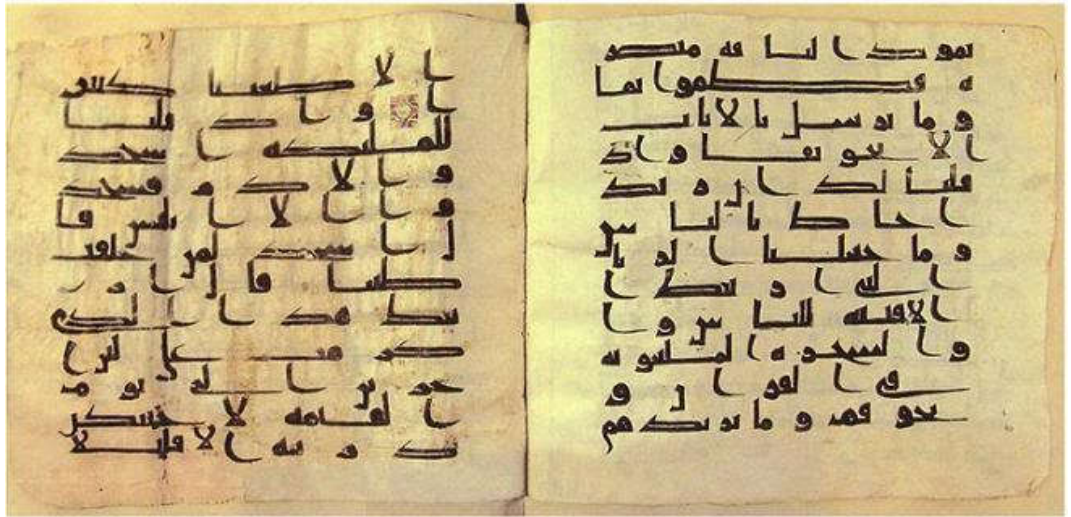 ثمود الناقة مبصر
ة فظلموا بها
وما نرسل بالايت
الا تخويفا واذ
قلنا لك ان ربك
احاط بالناس
وما جعلنا الريا
التي ارينك ا
لا فتنة للناس و ا
لشجرة الملعونة
في القران و
نخوفهم فما يزيدهم
الا طغينا كبير
ا واذ قلنا
للملئكة اسجد
وا لادم فسجد
وا الا ابليس قا
ل اسجد لمن خلقت
طينا قال ار
يتك هذا الذي
كرمت علي لئن ا
خرتن الى يوم
القيمة لاحتنكن
ذريته الا قليلا